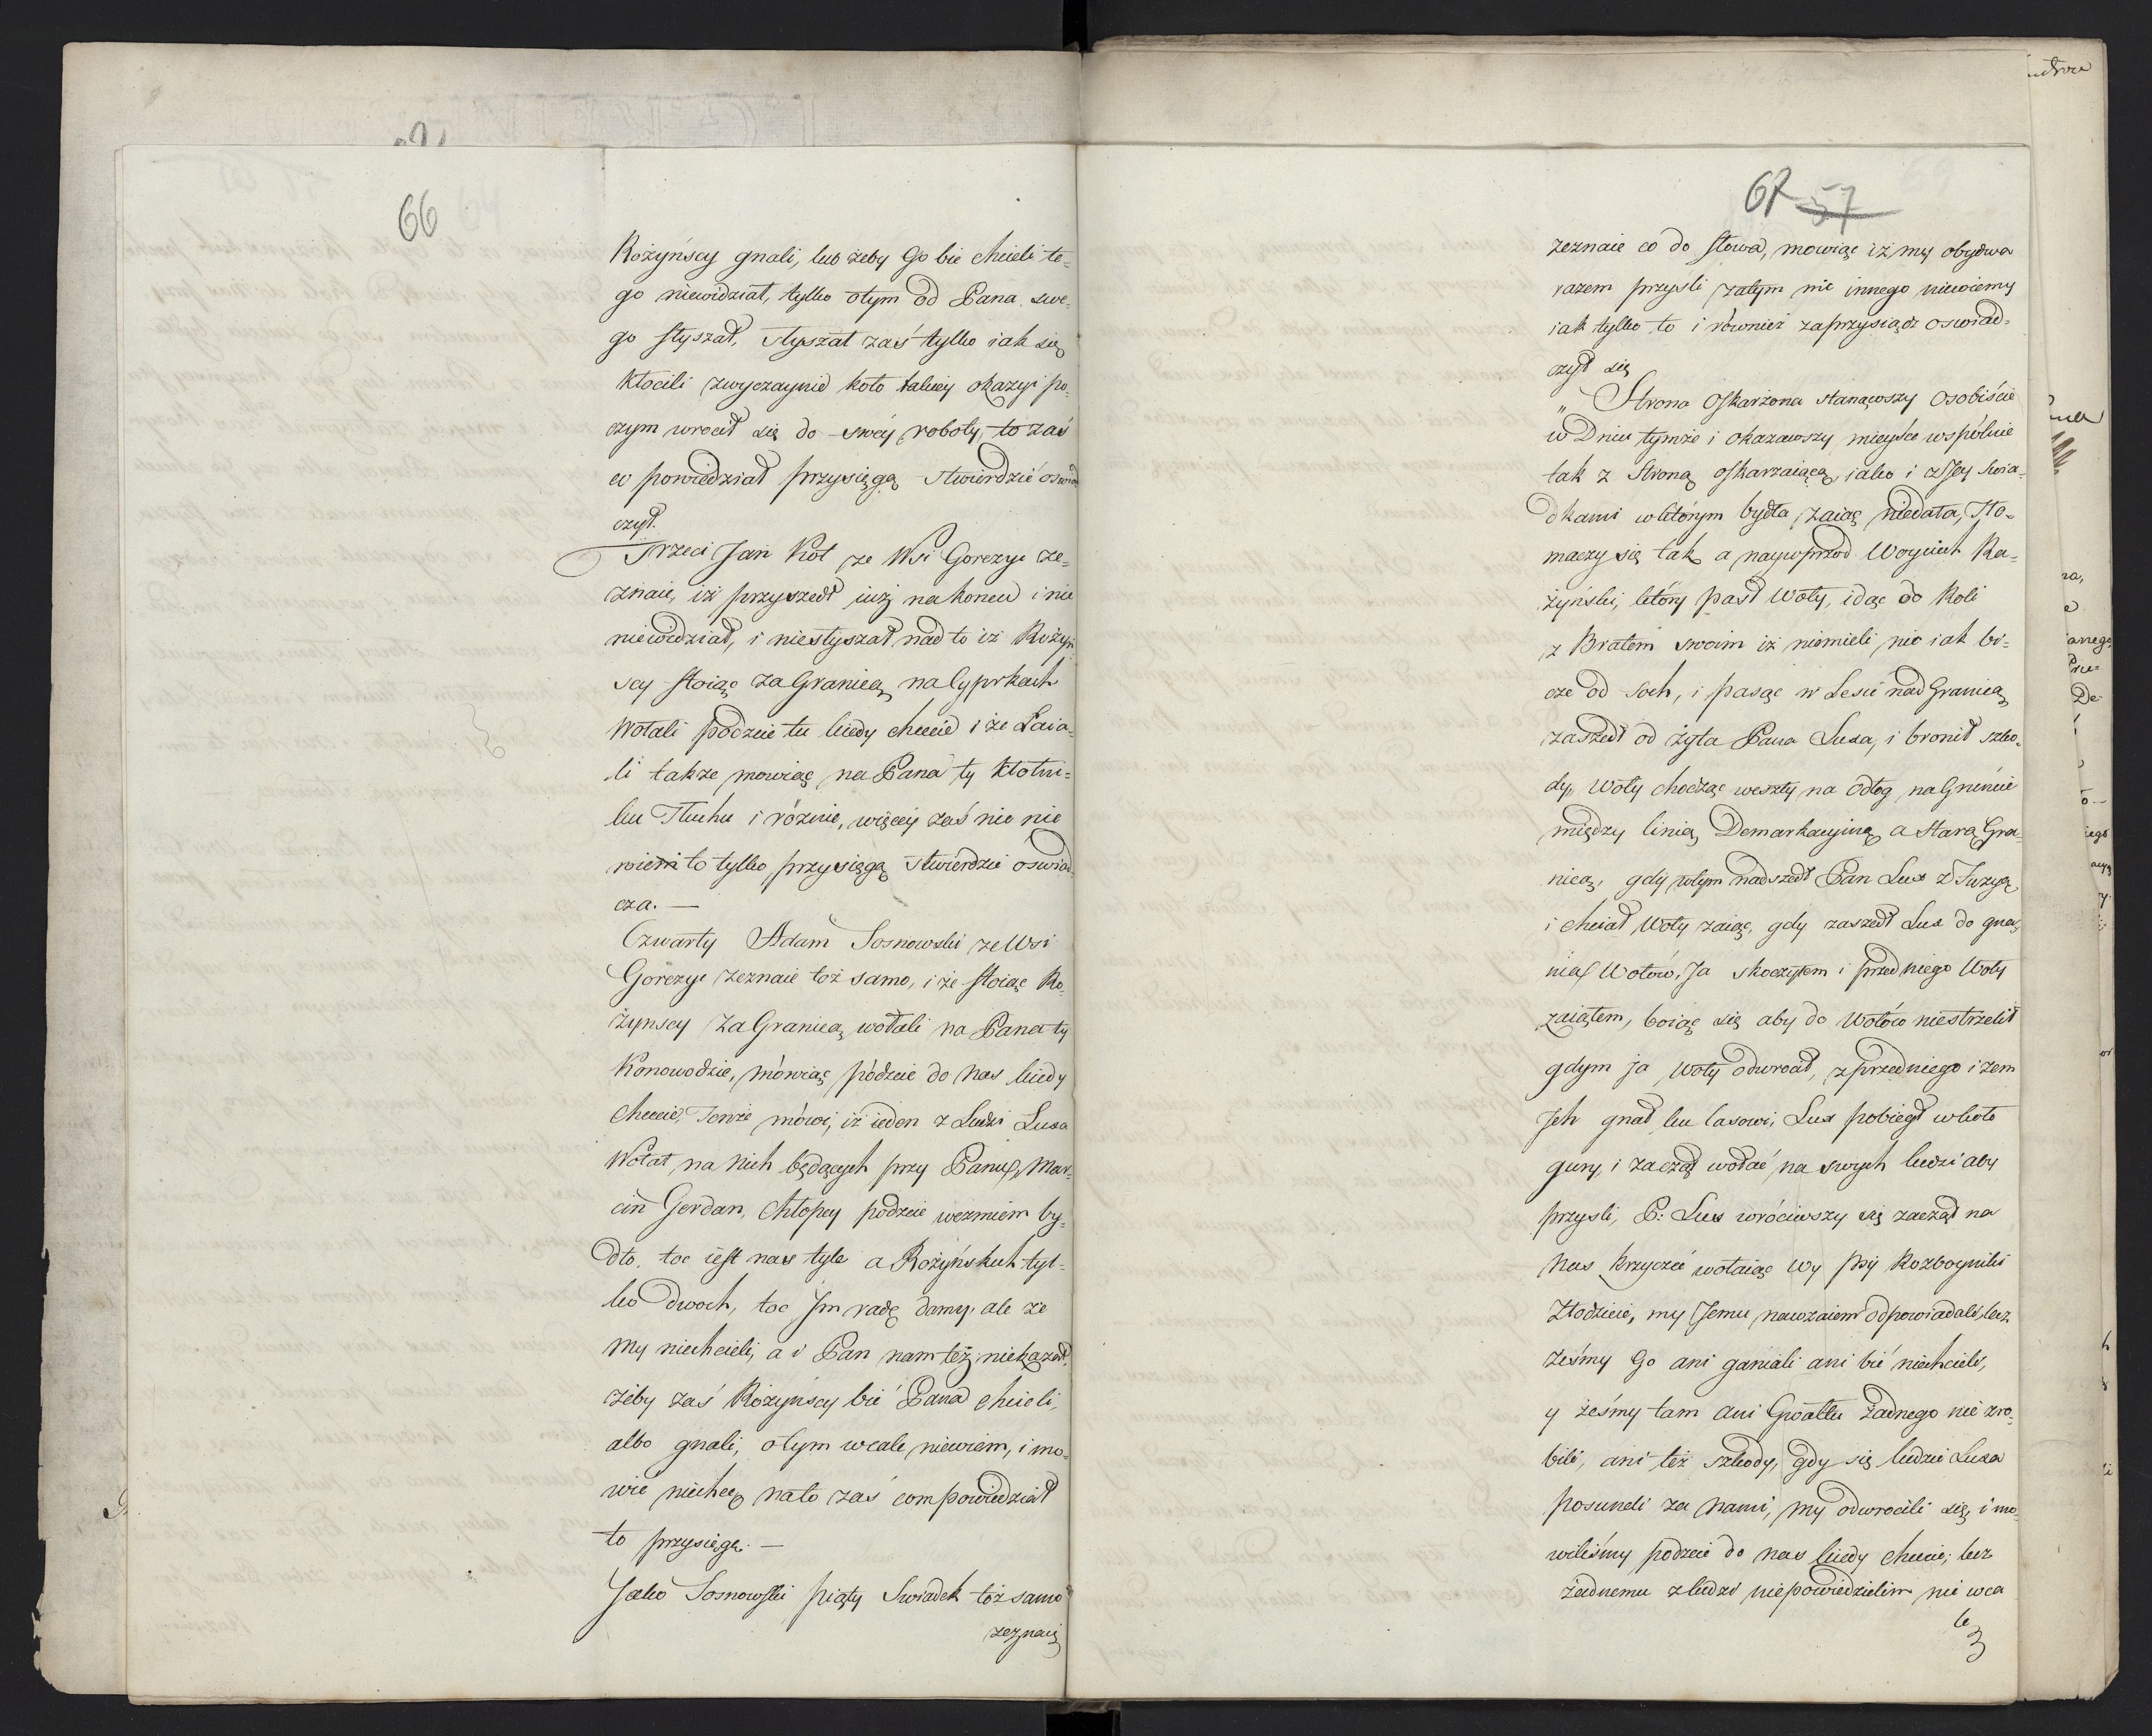 66
Rożyńscy gnali, lub żeby Go bić chcieli te=
go niewidział, tylko otym od Pana swe=
go słyszał, słyszał zaś tylko iak się
kłocili zwyczaynie koło takiey okazyi po=
czym wrocił się do swéy roboty, to zaś
co powiedział przysięgą stwierdzić oswiad
czył.
Trzeci Jan Kot ze Wsi Gorczyc ze=
znaie, iż przyszedł iuż na koncu i nic
niewidział, i niesłyszał nad to iż Rożyń
scy stoiąc za Granicą na Cyprkach
wołali podzcie tu kiedy chcecie i że Łaia=
li także mowiąc na Pana ty kłotni=
ku Tłuchu i róznie, więcéy zaś nic nie
wiem to tylko przysięgą stwierdzić oswiad=
cza. —
Czwarty Adam Sosnowski ze Wsi
Gorczyc zeznaie toż samo, i że stoiąc Ro=
żynscy za Granicą wołali na Pana ty
Konowodzie, mówiąc pódzcie do nas kiedy
chcecie, Tenże mówi, iż ieden z Ludzi Luxa
Wołał na nich będących przy Panu, Mar=
cin Gerdan, chłopcy podzcie wezmiem by=
dło, toc iest nas tyle a Rożyńskich tyl=
ko dwoch, toc Jm radę damy, ale że
my niechcieli, a i Pan nam też niekazał,
żeby zaś Rożyńscy bić Pana chcieli,
albo gnali, otym wcale niewiem, i mo=
wić niechcę na to zaś com powiedział
to przysięgę. —
Jakób Sosnowski piąty Swiadek tóż samo
zeznaie
67 57
zeznaie co do słowa, mowiąc iż my obydwa
razem przyśli zatym nic innego niewiemy
iak tylko to i również zaprzysiądz oswiad=
czył się
„ Strona Oskarżona stanąwszy Osobiście
w Dniu tymże i okazawszy mieysce wspólnie
tak z Stroną oskarzaiącą, iako i z Jey swia=
dkami w którym bydła zaiąć niedała, Tło=
maczy się tak a naywprzod Woyciech Ro=
żyński, który pasł Woły, idąc do Roli
z Bratem swoim iż niemieli nic iak bi=
cze od soch, i pasąc w Lesie nad Granicą
zaszedł od żyta Pana Luxa, i bronił szko=
dy, Woły chodząc weszły na Odłog na Gruncie
między linią Demarkacyiną a starą Gra=
nicą, gdy wtym nadszedł Pan Lux z Fuzyą
i chciał Woły zaiąć, gdy zaszedł Lux do gna=
nia Wołów, Ja skoczyłem i przed niego Woły
zaiąłem, boiąc się aby do Wołów niestrzelił
gdym ja Woły odwrocił, z przed niego i żem
Jch gnał ku lasowi, Lux pobiegł w koło
gury, i zaczął wołać na swych ludzi aby
przyśli, P: Lux wróciwszy się zaczął na
nas krzyczeć wołaiąc Wy psy Rozboyniki
Złodzieie, my Jemu nawzaiem odpowiadali, lecz
żeśmy Go ani ganiali ani bić niechcieli,
y żeśmy tam ani Gwałtu żadnego nie zro=
bili, ani też szkody, gdy się ludzie Luxa
posuneli za nami, my odwrocili się, i mo=
wiliśmy podzcie do nas kiedy chcecie, lecz
żadnemu z ludzi niepowiedzielim nic wca
le